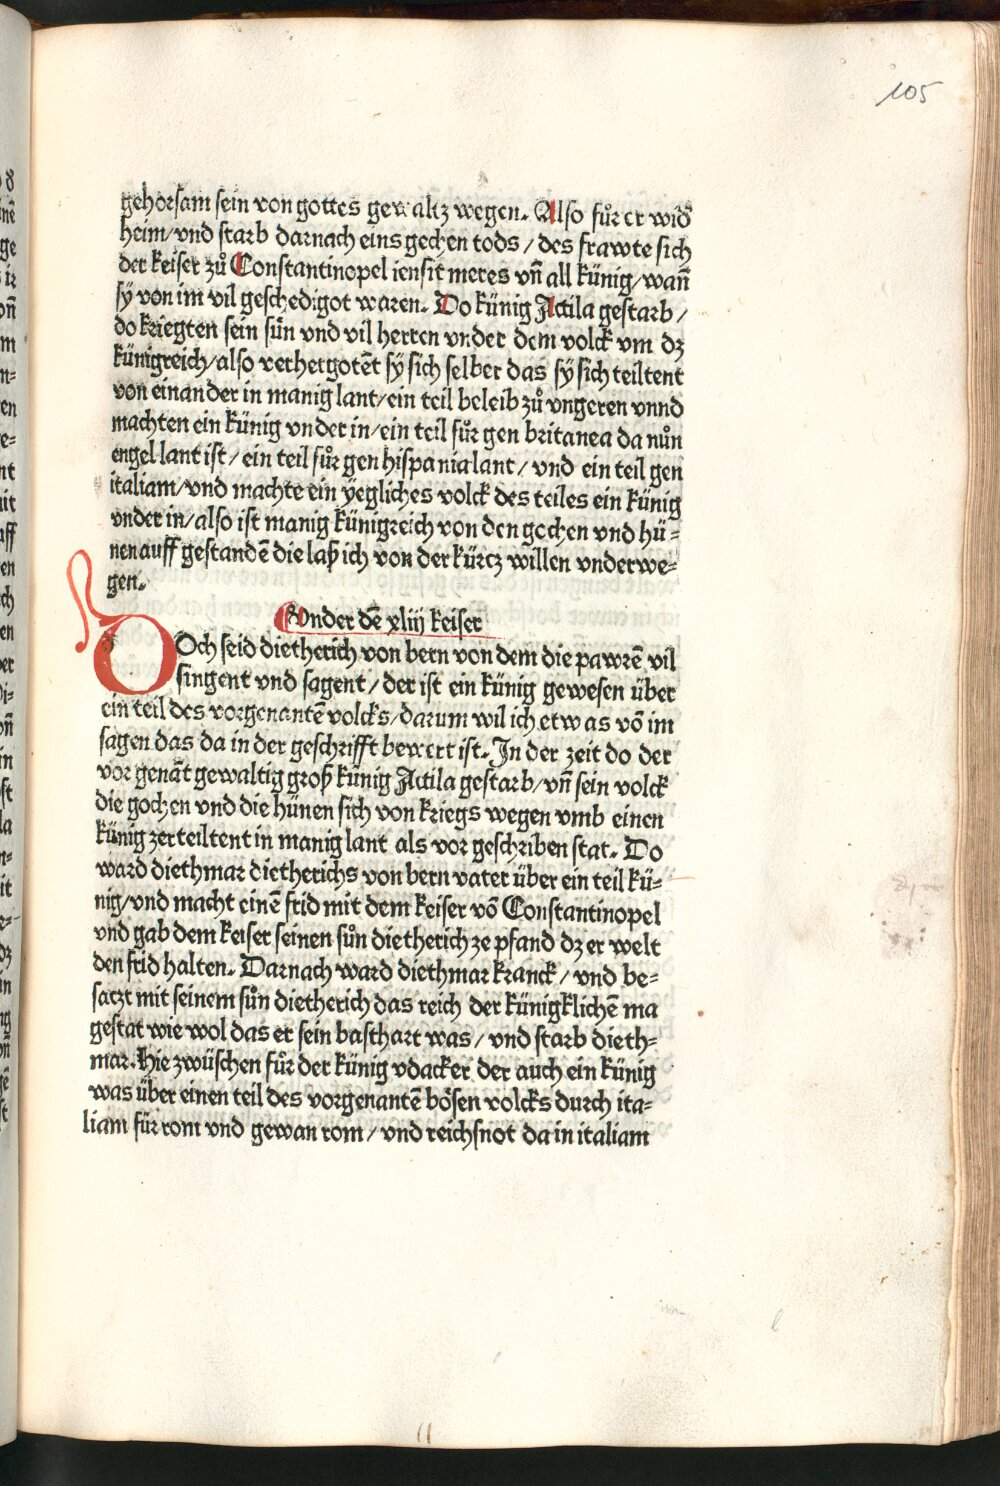 105
gehorsam sein von gottes gewaltz wegen. Also fůr er wid᷑
heim/vnd starb darnach eins gechen tods / des frawte sich
der keiser zů Constantinopel iensit meres vn̄ all künig/wan̄
sy̋ von im vil geschedigot waren. Do künig Actila gestarb /
do kriegten sein sün vnd vil herren vnder dem volck vm dz
künigreich/also verhergotēt sy̋ sich selber das sy̋ sich teiltent
von einander in manig lant/ein teil beleib zů vngeren vnnd
machten ein künig vnder in/ein teil fůr gen britanea da nůn
engellant ist/ein teil fůr gen hispania lant / vnd ein teil gen
italiam/vnd machte ein yegliches volck des teiles ein künig
vnder in/also ist manig künigreich von den gochen vnd hü=
nen auff gestandē die laß ich von der kürcz willen vnderwe=
gen.
Vnder dē xliij keiser
DOch seid dietherich von bern von dem die pawrē vil
singent vnd sagent/der ist ein künig gewesen über
ein teil des vorgenantē volcks/darum wil ich etwas vō im
sagen das da in der geschrifft bewert ist. In der zeit do der
vor genāt gewaltig groß künig Actila gestarb/vn̄ sein volck
die gochen vnd die hünen sich von kriegs wegen vmb einen
künig zerteiltent in manig lant als vor geschriben stat. Do
ward diethmar dietherichs von bern vater über ein teil kü=
nig/vnd macht einē frid mit dem keiser vō Constantinopel
vnd gab dem keiser seinen sůn dietherich ze pfand dz er welt
den frid halten. Darnach ward diethmar kranck / vnd be=
satzt mit seinem sůn dietherich das reich der künigklichē ma
gestat wie wol das er sein basthart was/ vnd starb dieth=
mar. Hie zwüschen fůr der künig vdacker der auch ein künig
was über einen teil des vorgenantē bösen volcks durch ita=
liam für rom vnd gewan rom/vnd reichsnot da in italiam